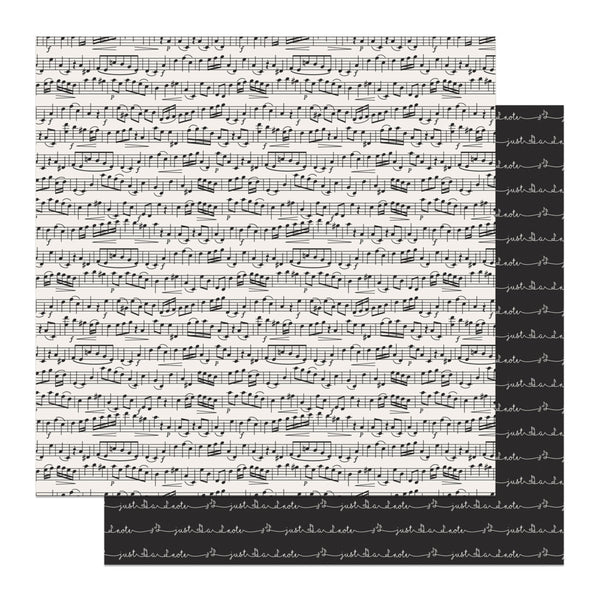 note
just a
note
just a
note
just a
note
just a
note
just a
note
just a
note
just a
note
just a
just a note just a note just a note just a
note just a note just a note just a note
just a note just a note just a note just a